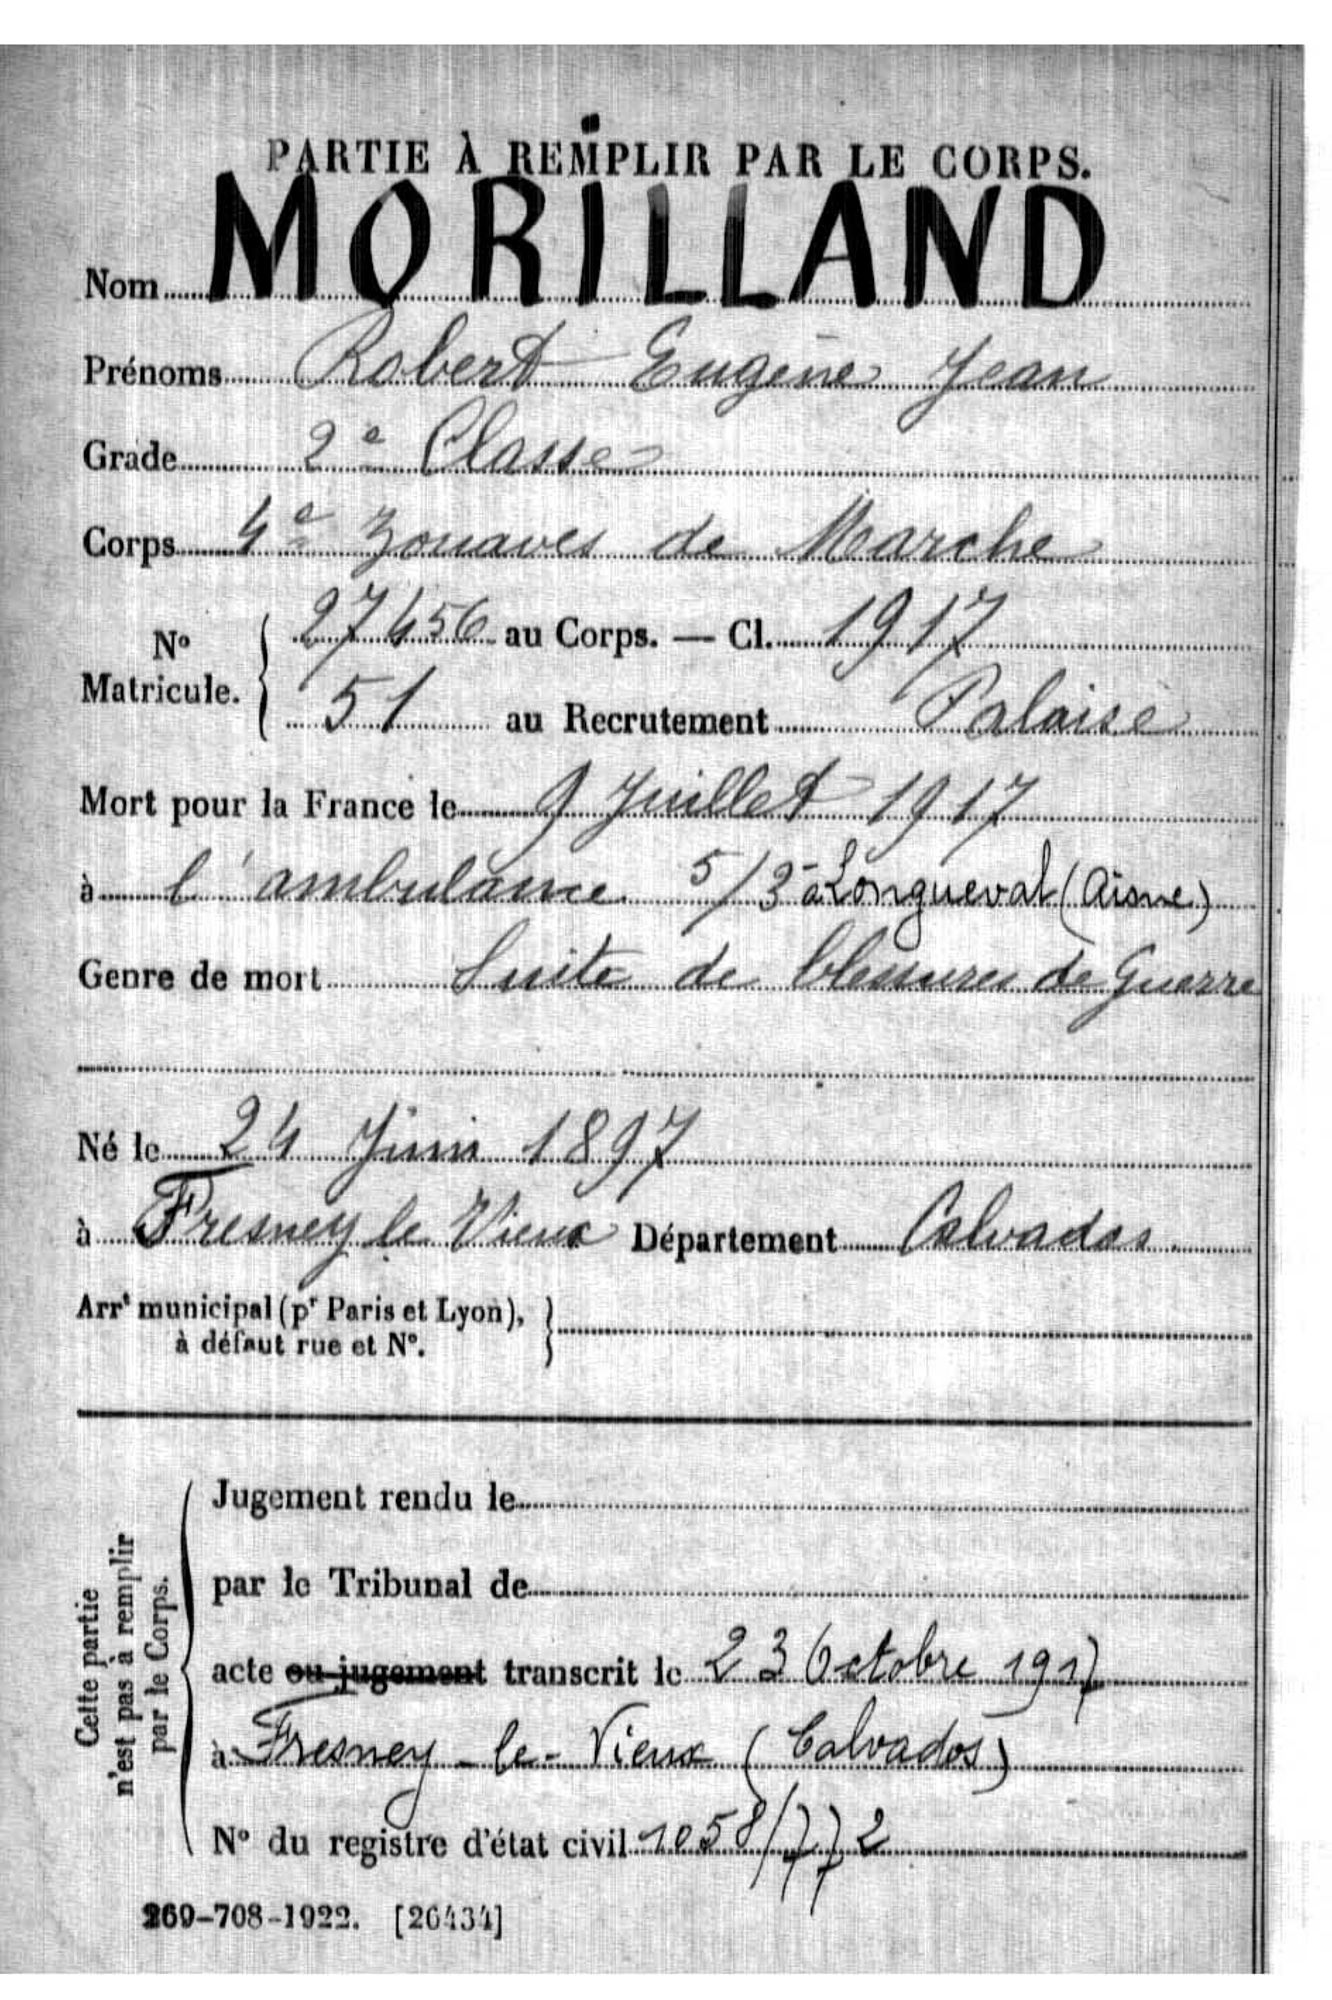 PARTIE À REMPLIR PAR LE CORPS.
Nom MORILLAND
Prénoms Robert Eugène Jean
Grade 2e Classe
Corps 4e Zouaves de Marche
No Matricule. { 27456 au Corps. — Cl. 1917
51 au Recrutement Falaise
Mort pour la France le 9 Juillet 1917
à l'ambulance 5/3 à Longueval (Aisne)
Genre de mort Suite de blessures de Guerre
Né le 24 Juin 1897
à Fresney le Vieux Département Calvados
Arrt municipal (pr Paris et Lyon), à défaut rue et No. }
Cette partie n'est pas à remplir par le Corps.
Jugement rendu le
par le Tribunal de
acte ou jugement transcrit le 23 Octobre 1917
à Fresney-le-Vieux (Calvados)
No du registre d'état civil 1058/772
269-708-1922. [26434]